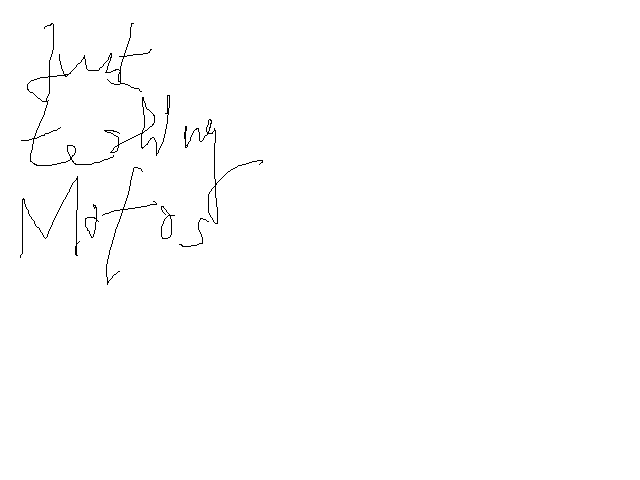 Just
testing
Motos